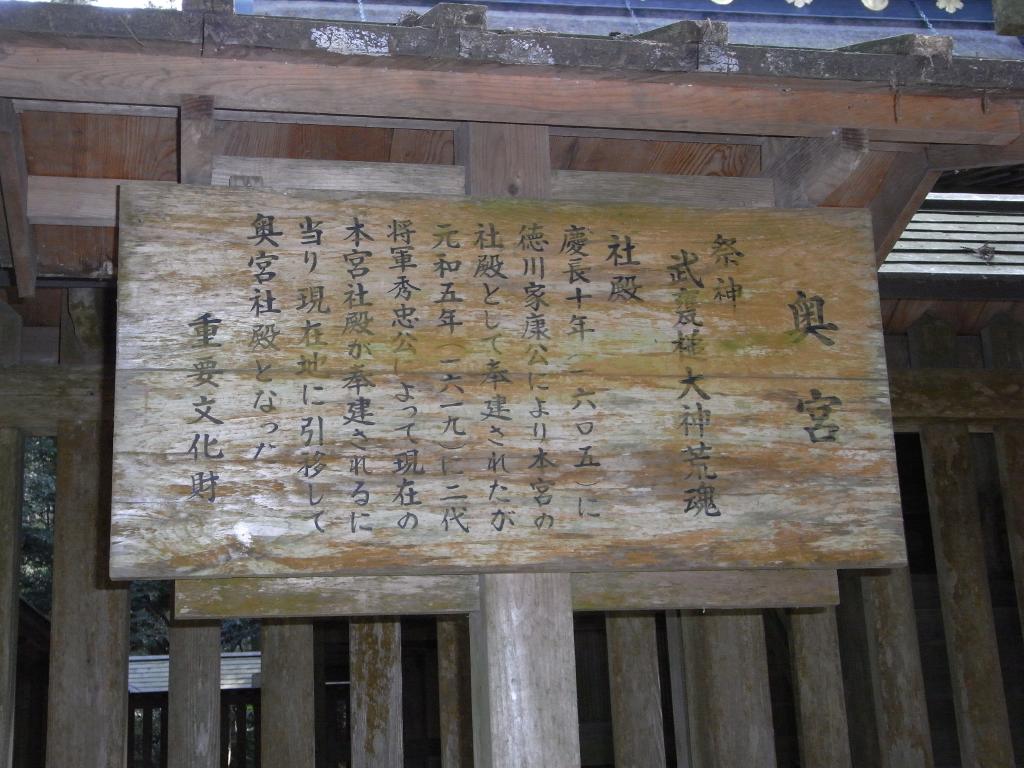 奥宮
祭神
武甕槌大神荒魂
社殿
慶長十年(一六〇五)に
徳川家康公により本宮の
社殿として奉建されたが
元和五年(一六一九)に二代
将軍秀忠公によって現在の
本宮社殿が奉建されるに
当り現在地に引移して
奥宮社殿となった
重要文化財